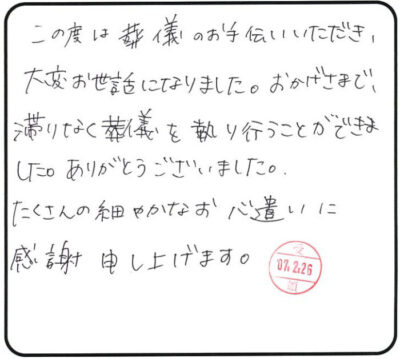 この度は葬儀のお手伝いいただき、
大変お世話になりました。おかげさまで、
滞りなく葬儀を執り行うことができま
した。ありがとうございました。
たくさんの細やかなお心遣いに
感謝申し上げます。
'07.2.26